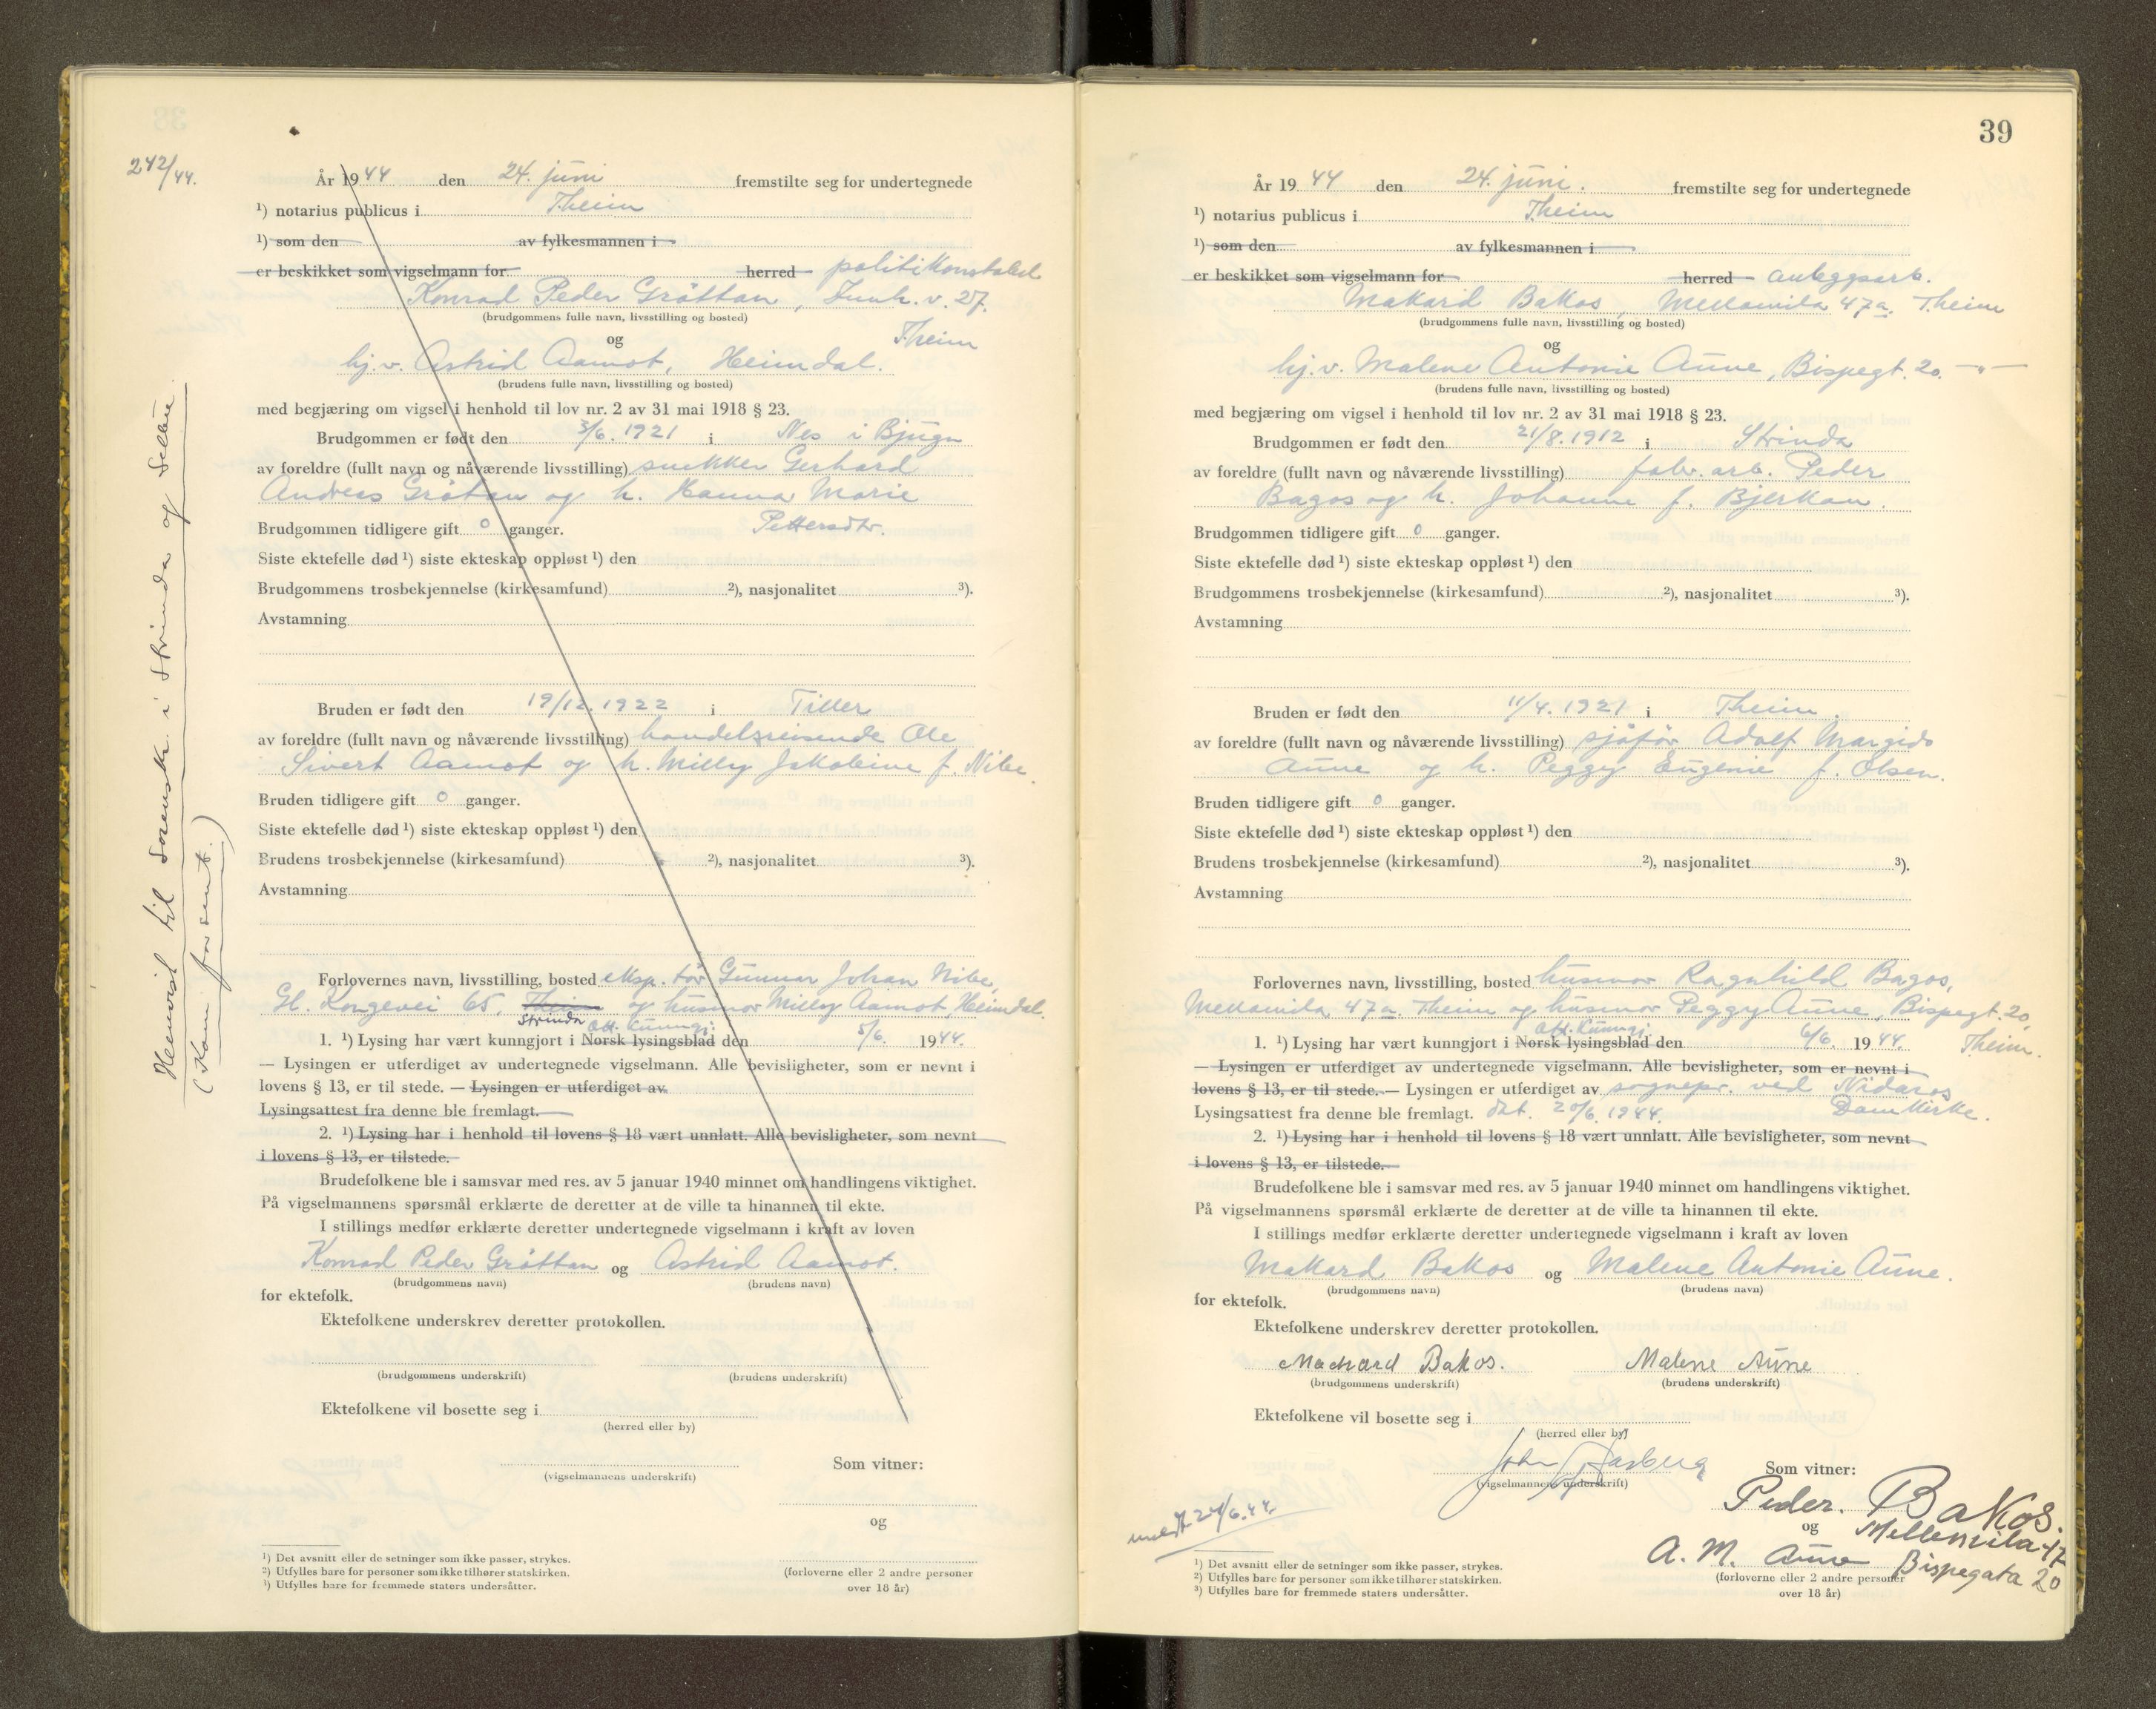 242/44.
År 1944 den 24. juni fremstilte seg for undertegnede
¹) notarius publicus i Theim
¹) som den av fylkesmannen i
er beskikket som vigselmann for herred politikonstabel
Konrad Peder Gråttan, Innh. v. 27.
(brudgommens fulle navn, livsstilling og bosted)
og Theim
hj.v. Astrid Aamot, Heimdal.
(brudens fulle navn, livsstilling og bosted)
med begjæring om vigsel i henhold til lov nr. 2 av 31 mai 1918 § 23.
Brudgommen er født den 3/6. 1921 i Nes i Bjugn
av foreldre (fullt navn og nåværende livsstilling) snekker Gerhard
Andreas Gråtan og h. Hanna Marie
Brudgommen tidligere gift 0 ganger. Pettersdtr.
Siste ektefelle død ¹) siste ekteskap oppløst ¹) den
Brudgommens trosbekjennelse (kirkesamfund) ²), nasjonalitet ³).
Avstamning
Bruden er født den 19/12. 1922 i Tiller
av foreldre (fullt navn og nåværende livsstilling) handelsreisende Ole
Sivert Aamot og h. Milly Jakobine f. Nibe.
Bruden tidligere gift 0 ganger.
Siste ektefelle død ¹) siste ekteskap oppløst ¹) den
Brudens trosbekjennelse (kirkesamfund) ²), nasjonalitet ³).
Avstamning
Forlovernes navn, livsstilling, bosted eksp. tør Gunnar Johan Nibe,
Gl. Kongevei 65, Theim og husmor Milly Aamot, Heimdal.
Strinda off. kunngj.
1. ¹) Lysing har vært kunngjort i Norsk lysingsblad den 5/6. 1944.
— Lysingen er utferdiget av undertegnede vigselmann. Alle bevisligheter, som er nevnt i
lovens § 13, er til stede. — Lysingen er utferdiget av
Lysingsattest fra denne ble fremlagt.
2. ¹) Lysing har i henhold til lovens § 18 vært unnlatt. Alle bevisligheter, som nevnt
i lovens § 13, er tilstede.
Brudefolkene ble i samsvar med res. av 5 januar 1940 minnet om handlingens viktighet.
På vigselmannens spørsmål erklærte de deretter at de ville ta hinannen til ekte.
I stillings medfør erklærte deretter undertegnede vigselmann i kraft av loven
Konrad Peder Gråttan og Astrid Aamot.
(brudgommens navn) (brudens navn)
for ektefolk.
Ektefolkene underskrev deretter protokollen.
(brudgommens underskrift) (brudens underskrift)
Ektefolkene vil bosette seg i
(herred eller by)
Som vitner:
(vigselmannens underskrift)
og
¹) Det avsnitt eller de setninger som ikke passer, strykes.
²) Utfylles bare for personer som ikke tilhører statskirken.
³) Utfylles bare for fremmede staters undersåtter.
(forloverne eller 2 andre personer
over 18 år)
Henvist til Sorenskr. i Strinda og Selbu.
(Kom for sent.)
39
År 1944 den 24. juni. fremstilte seg for undertegnede
¹) notarius publicus i Theim
¹) som den av fylkesmannen i
er beskikket som vigselmann for herred anleggsarb.
Makard Bakos, Mellomila 47a. Theim
(brudgommens fulle navn, livsstilling og bosted)
og
hj.v. Malene Antonie Aune, Bispegt. 20. —"—
(brudens fulle navn, livsstilling og bosted)
med begjæring om vigsel i henhold til lov nr. 2 av 31 mai 1918 § 23.
Brudgommen er født den 21/8. 1912 i Strinda
av foreldre (fullt navn og nåværende livsstilling) fabr. arb. Peder
Bagos og h. Johanne f. Bjerkan.
Brudgommen tidligere gift 0 ganger.
Siste ektefelle død ¹) siste ekteskap oppløst ¹) den
Brudgommens trosbekjennelse (kirkesamfund) ²), nasjonalitet ³).
Avstamning
Bruden er født den 11/4. 1921 i Theim.
av foreldre (fullt navn og nåværende livsstilling) sjåfør Adolf Margido
Aune og h. Peggy Eugenie f. Olsen.
Bruden tidligere gift 0 ganger.
Siste ektefelle død ¹) siste ekteskap oppløst ¹) den
Brudens trosbekjennelse (kirkesamfund) ²), nasjonalitet ³).
Avstamning
Forlovernes navn, livsstilling, bosted husmor Ragnhild Bagos,
Mellomila 47a. Theim og husmor Peggy Aune, Bispegt. 20,
off. kunngj.
1. ¹) Lysing har vært kunngjort i Norsk lysingsblad den 6/6. 1944. Theim.
— Lysingen er utferdiget av undertegnede vigselmann. Alle bevisligheter, som er nevnt i
lovens § 13, er til stede. — Lysingen er utferdiget av sognepr. ved Nidaros
Lysingsattest fra denne ble fremlagt. dat. 20/6. 1944. Domkirke.
2. ¹) Lysing har i henhold til lovens § 18 vært unnlatt. Alle bevisligheter, som nevnt
i lovens § 13, er tilstede.
Brudefolkene ble i samsvar med res. av 5 januar 1940 minnet om handlingens viktighet.
På vigselmannens spørsmål erklærte de deretter at de ville ta hinannen til ekte.
I stillings medfør erklærte deretter undertegnede vigselmann i kraft av loven
Makard Bakos og Malene Antonie Aune.
(brudgommens navn) (brudens navn)
for ektefolk.
Ektefolkene underskrev deretter protokollen.
Machard Bakos. Malene Aune
(brudgommens underskrift) (brudens underskrift)
Ektefolkene vil bosette seg i
(herred eller by)
John Aasberg Som vitner:
(vigselmannens underskrift)
Peder. Bakos.
og Mellemila 47
A. M. Aune Bispegata 20
meldt 24/6.44
¹) Det avsnitt eller de setninger som ikke passer, strykes.
²) Utfylles bare for personer som ikke tilhører statskirken.
³) Utfylles bare for fremmede staters undersåtter.
(forloverne eller 2 andre personer
over 18 år)